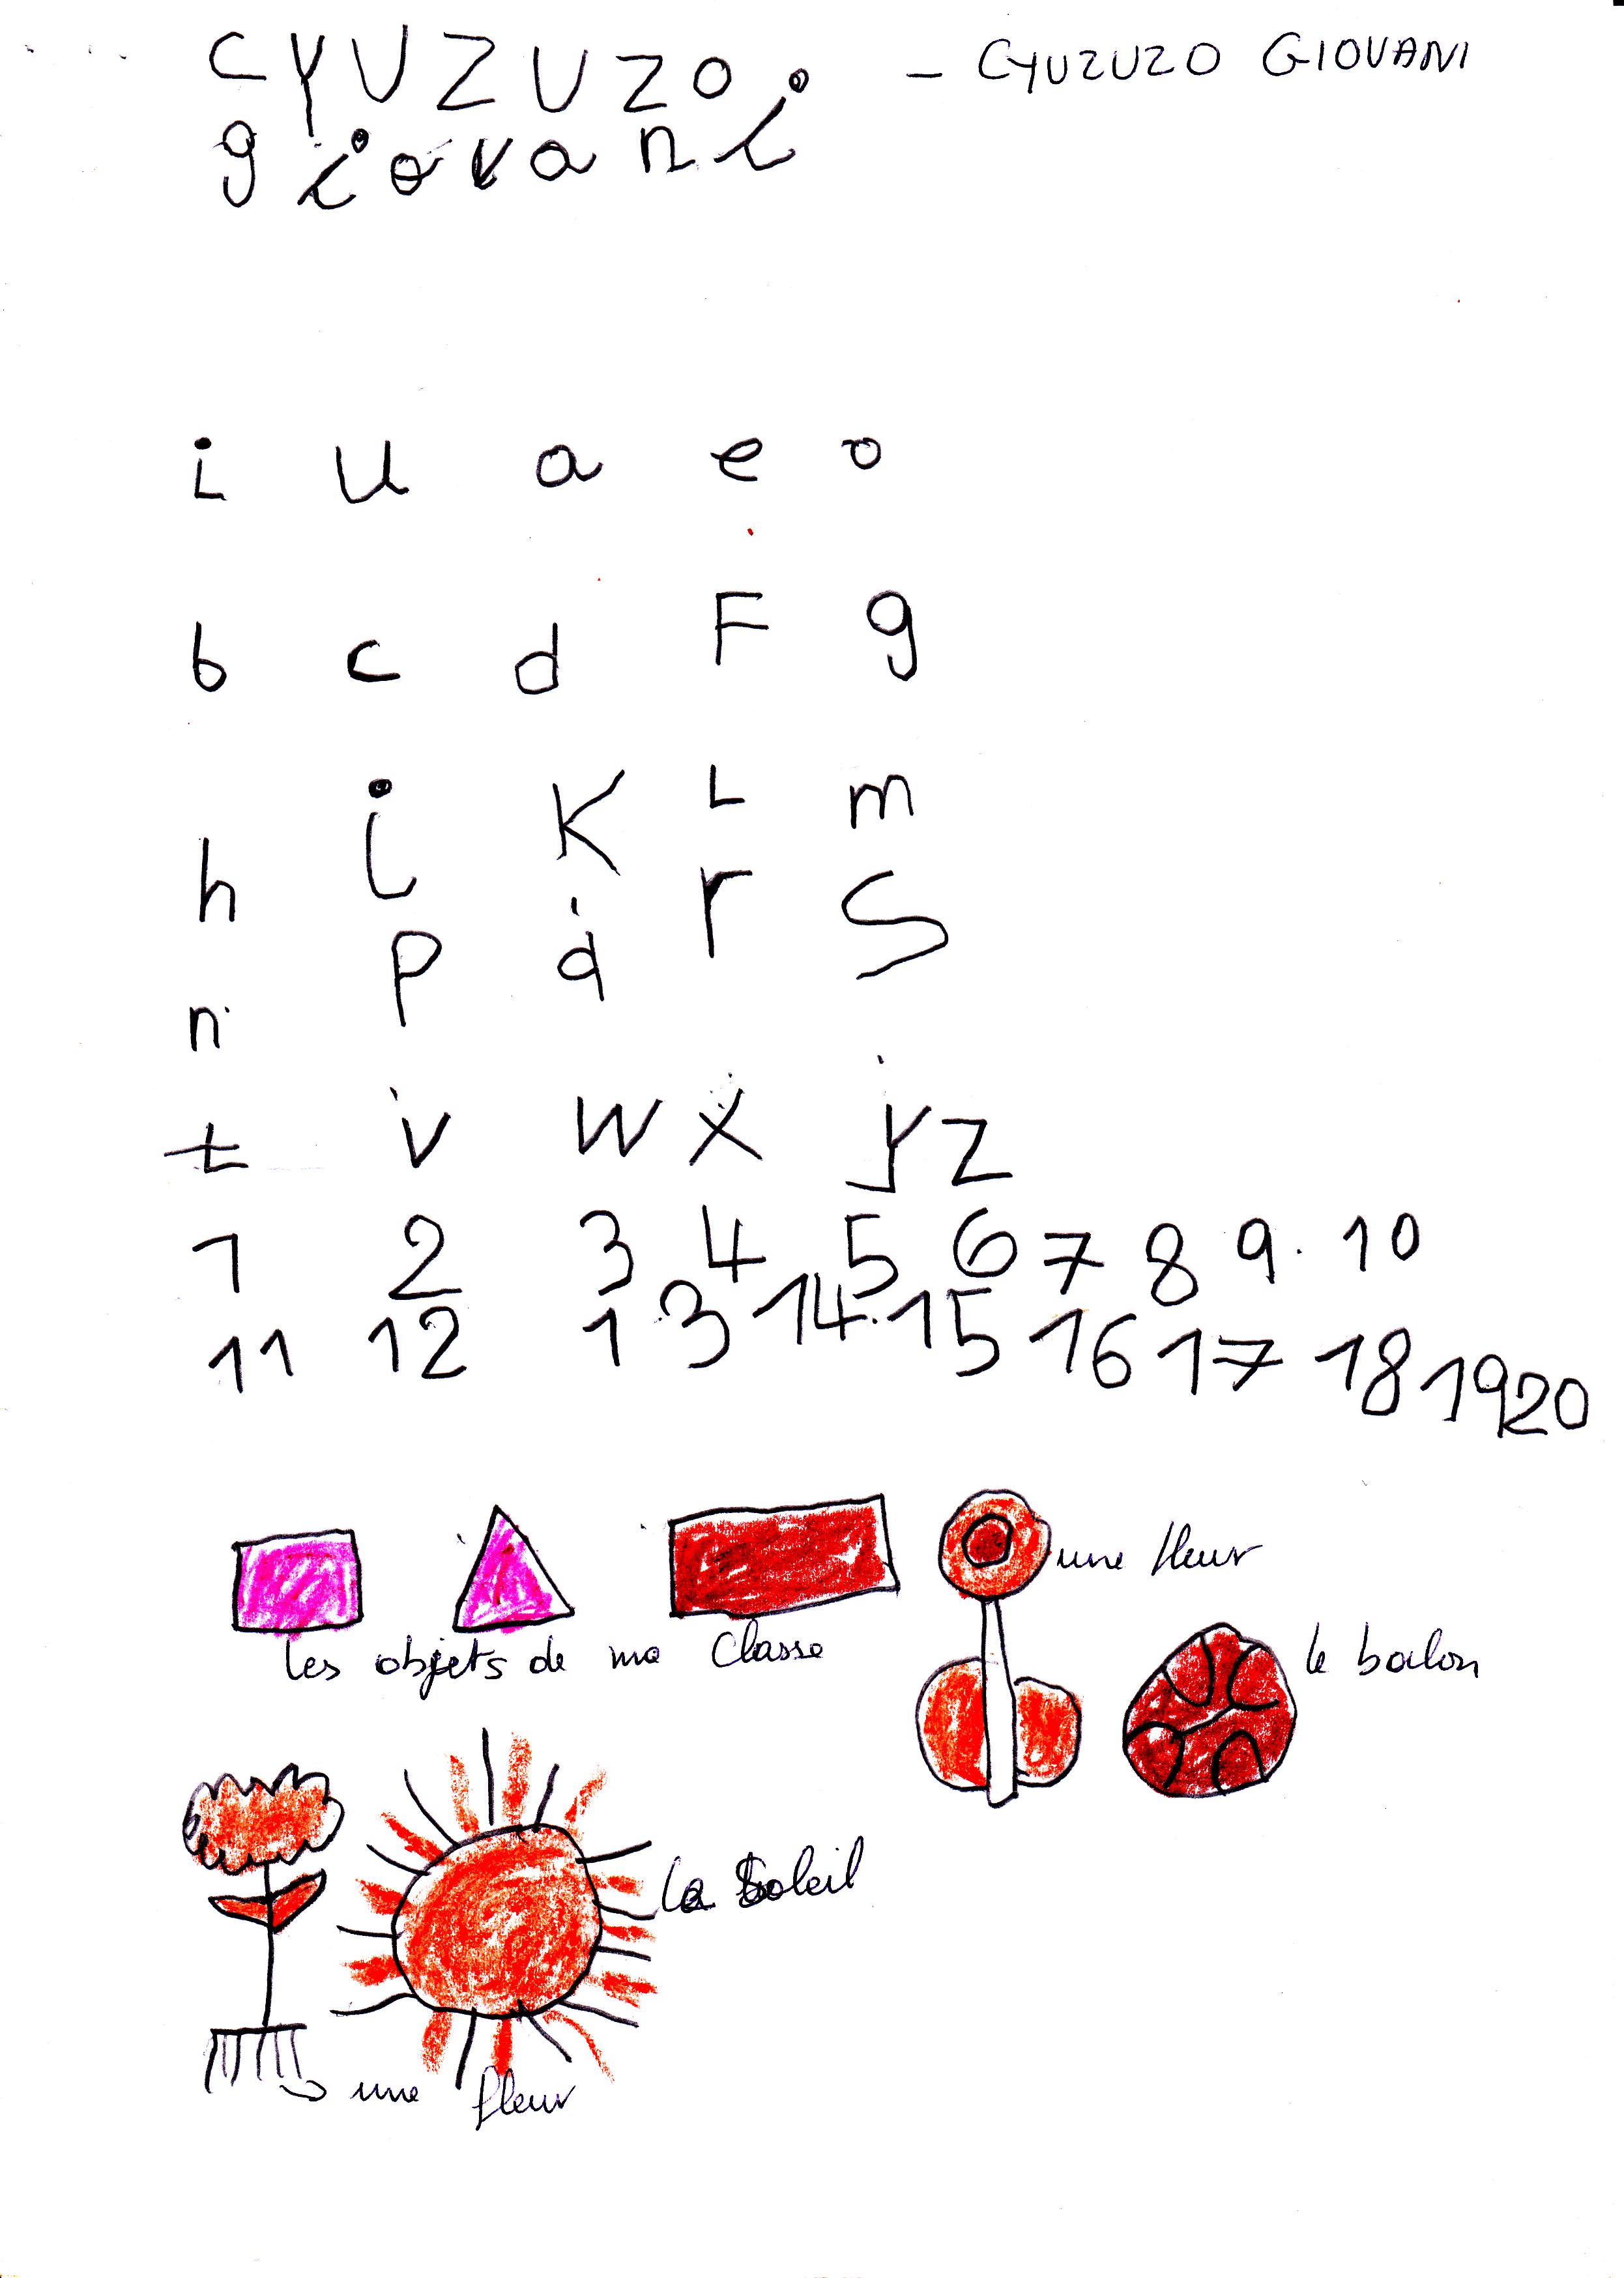 CYUZUZO - CYUZUZO GIOVANI
giovani
i u a e o
b c d F g
h i K L m
n p q r S
t v W X y Z
1 2 3 4 5 6 7 8 9 10
11 12 13 14 15 16 17 18 19 20
une fleur
les objets de ma Classe
le balon
Le Soleil
une fleur